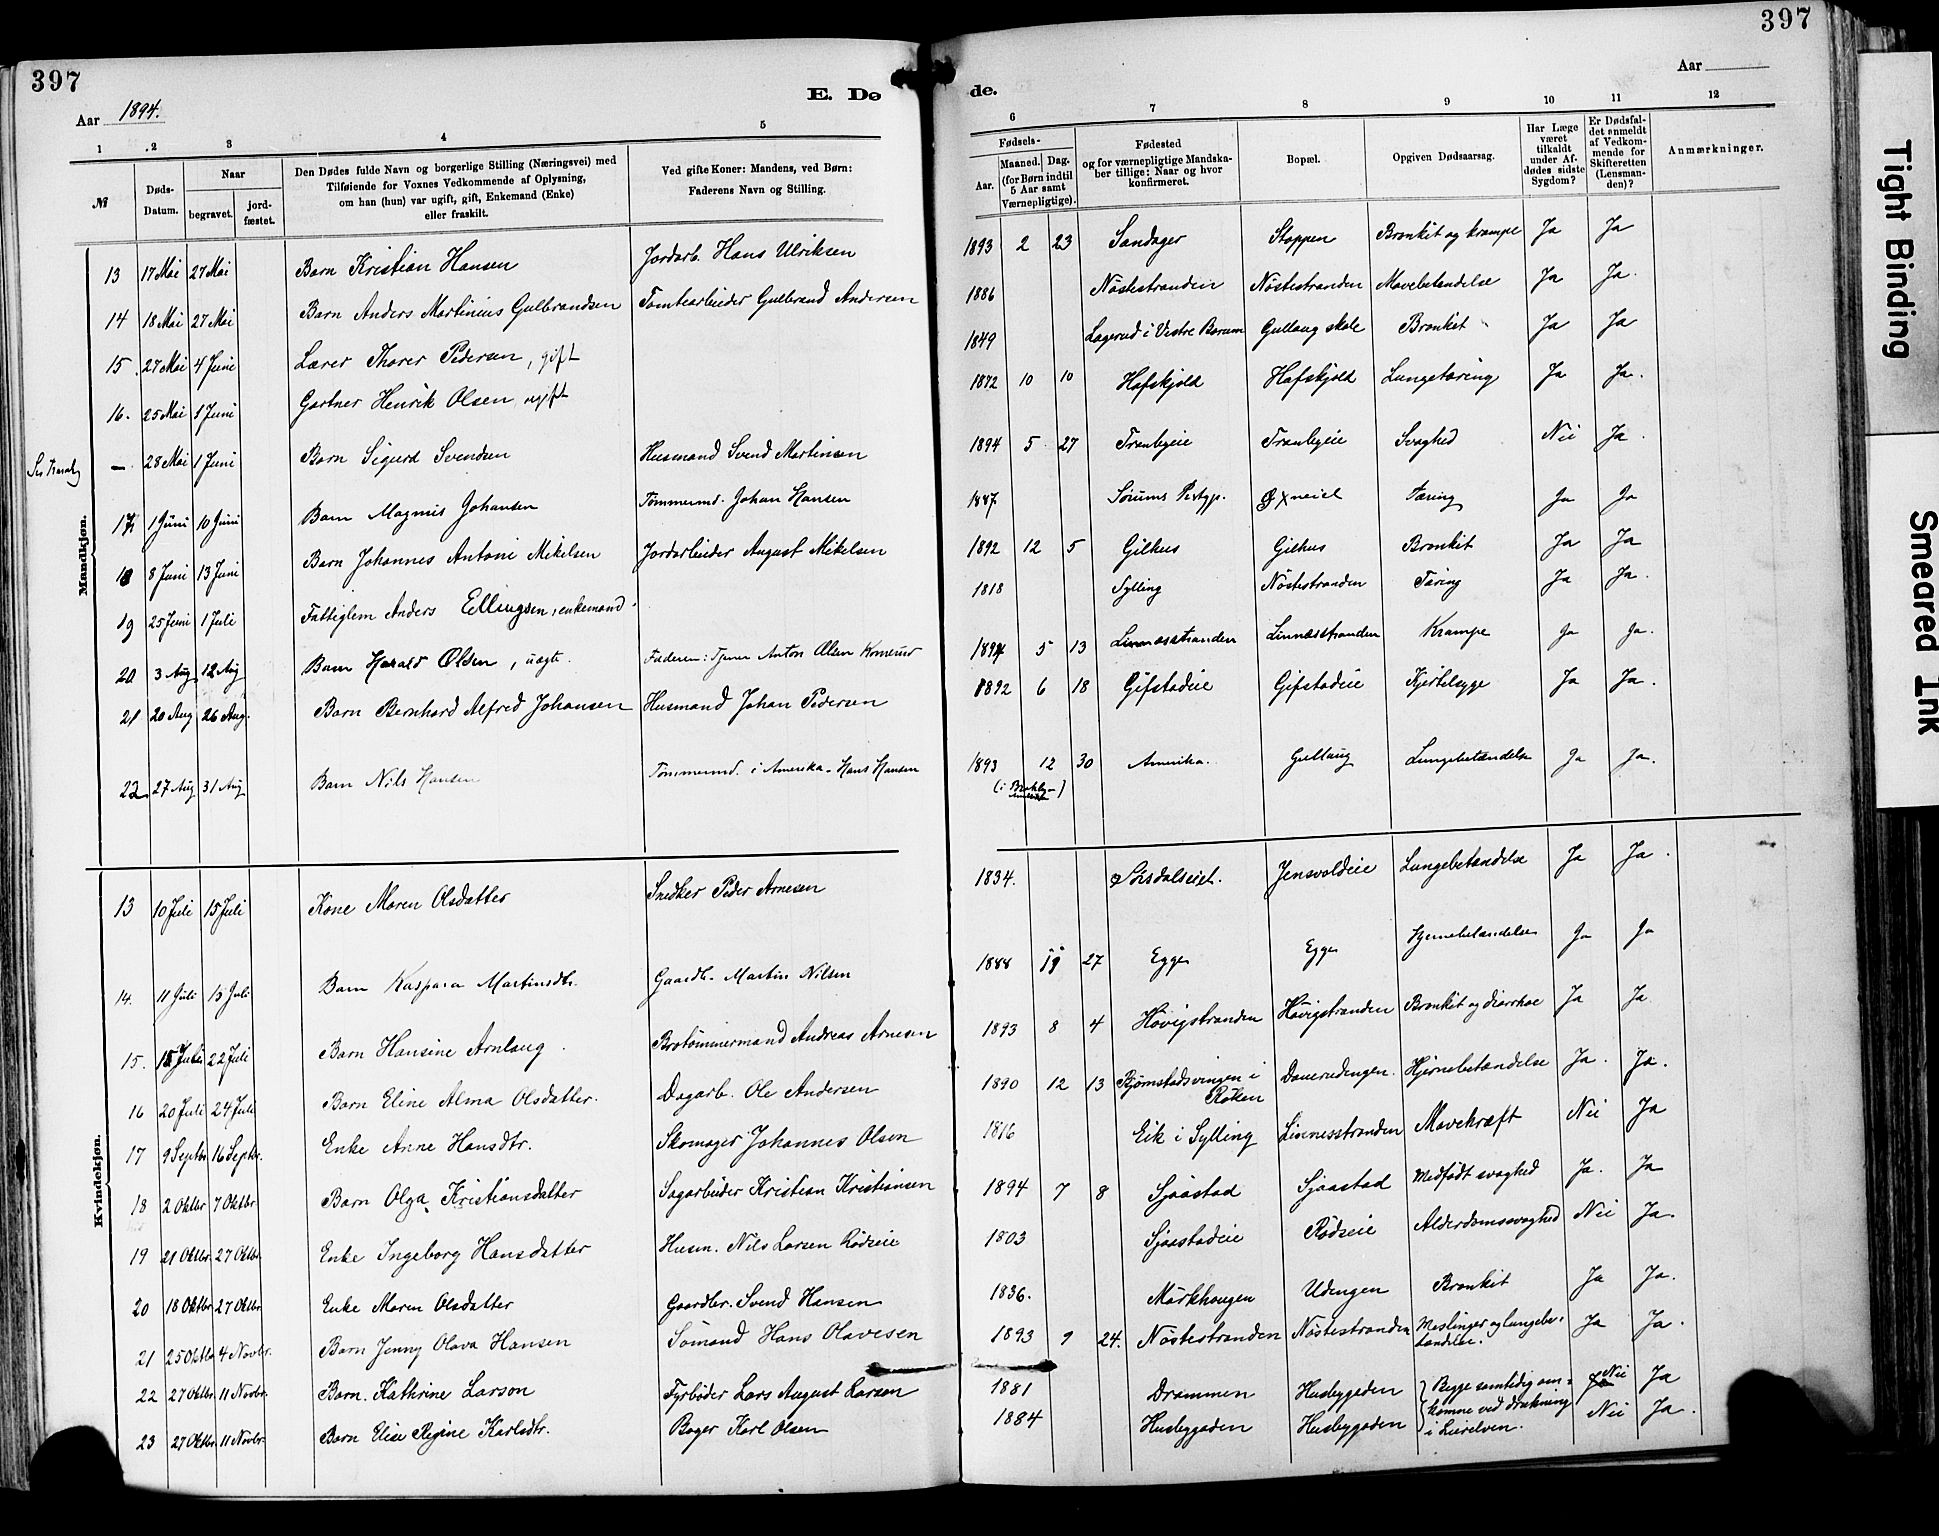 397
Aar 1894.
E. Dø
1 2 3 4 5
№
Døds-Datum.
Naar
begravet.
jord-fæstet.
Den Dødes fulde Navn og borgerlige Stilling (Næringsvei) med
Tilføiende for Voxnes Vedkommende af Oplysning,
om han (hun) var ugift, gift, Enkemand (Enke)
eller fraskilt.
Ved gifte Koner: Mandens, ved Børn:
Faderens Navn og Stilling.
Mandkjøn.
13 17 Mai 27 Mai Barn Kristian Hansen Jordarb. Hans Ulriksen
14 18 Mai 27 Mai Barn Anders Martinius Gulbrandsen Tomtearbeider Gulbrand Andersen
15. 27 Mai 4 Juni Lærer Thorer Pedersen, gift
16. 25 Mai 1 Juni Gartner Henrik Olsen, ugift
— 28 Mai 1 Juni Barn Sigurd Svendsen Husmand Svend Martinsen
17 1 Juni 10 Juni Barn Magnus Johansen Tømmermd. Johan Hansen
18 8 Juni 13 Juni Barn Johannes Antoni Mikelsen Jordarbeider August Mikelsen
19 25 Juni 1 Juli Fattiglem Anders Ellingsen, enkemand.
20 3 Aug 12 Aug Barn Harald Olsen, uægte. Faderen: Tjener Anton Olsen Komerud
21 20 Aug 26 Aug. Barn Bernhard Alfred Johansen Husmand Johan Pedersen
22 27 Aug 31 Aug Barn Nils Hansen Tømmermd. i Amerika - Hans Hansen
Kvindekjøn.
13 10 Juli 15 Juli Kone Maren Olsdatter Snedker Peder Arnesen
14. 11 Juli 15 Juli Barn Kaspara Martinsdtr. Gaardbr. Martin Nilsen
15. 15 Juli 22 Juli Barn Hansine Arnlaug. Brotømmermand Andreas Arnesen
16 20 Juli 24 Juli Barn Eline Alma Olsdatter. Dagarb. Ole Andersen
17 9 Septbr 16 Septbr. Enke Anne Hansdtr. Skomager Johannes Olsen
18 2 Oktbr 7 Oktbr Barn Olga Kristiansdatter Sagarbeider Kristian Kristiansen
19 21 Oktbr. 27 Oktbr. Enke Ingeborg Hansdatter Husm. Nils Larsen Rødseie
20 18 Oktbr. 27 Oktbr. Enke Maren Olsdatter Gaardbr. Svend Hansen
21 25 Oktbr 4 Novbr. Barn Jenny Olava Hansen Sømand Hans Olavesen
22 27 Oktbr. 11 Novbr. Barn. Kathrine Larson Fyrbøder Lars August Larson
23 27 Oktbr 11 Novbr. Barn Elise Regine Karlsdtr. Bager Karl Olsen
397
Aar
de.
6 7 8 9 10 11 12
Fødsels-
Aar.
Maaned. Dag.
(for Børn indtil
5 Aar samt
Værnepligtige).
Fødested
og for værnepligtige Mandska-
ber tillige: Naar og hvor
konfirmeret.
Bopæl.
Opgiven Dødsaarsag.
Har Læge
været
tilkaldt
under Af-
dødes sidste
Sygdom?
Er Dødsfal-
det anmeldt
af Vedkom-
mende for
Skifteretten
(Lensman-
den)?
Anmærkninger.
1893 2 23 Sandager Stoppen Bronkit og krampe Ja Ja
1886 Nøstestranden Nøstestranden Mavebetændelse Ja Ja.
1849 Lagerud i Vestre Bærum Gullaug skole Bronkit Ja Ja
1872 10 10 Hafskjold Hafskjold Lungetæring Ja Ja.
1894 5 27 Tranbyeie Tranbyeie Svaghed Nei Ja.
1887 Tæring Ja Ja
1892 12 5 Gilhus Gilhus Bronkit Ja Ja
1818 Sylling Nøstestranden Tæring Ja Ja.
1894 5 13 Linnæsstranden Linnæsstranden Krampe Ja Ja.
1892 6 18 Gifstadeie Gifstadeie Kjertelsyge Ja Ja.
1893 12 30 Amerika. Gullaug Lungebetændelse Ja Ja.
1834. Sørsdalseiet. Jensvoldeie Lungebetændelse Ja Ja.
1888 11 27 Egge Egge Hjernebetændelse Ja Ja
1893 8 4 Høvigstranden Høvigstranden Bronkit og diarrhoe Ja Ja
1890 12 13 Bjørnstadsvingen i Røken Hjernebetændelse Ja. Ja.
1816 Eik i Sylling Linnesstranden Mavekræft Nei Ja
1894 7 8 Sjaastad Sjaastad Medfødt svaghed Ja. Ja
1803 Sjaastadeie Rødseie Alderdomssvaghed Nei Ja.
1836. Mørkhaugen Udengen Bronkit Ja Ja.
1893 9 24. Nøstestranden Nøstestranden Meslinger og lungebe-
tændelse. Ja Ja.
1881 Drammen Husbygaden Begge samtidig om-
komne ved drukning
i Lierelven. Nei Ja
1884 Husbygaden Husbygaden Nei Ja.
Tight Binding
Smeared Ink